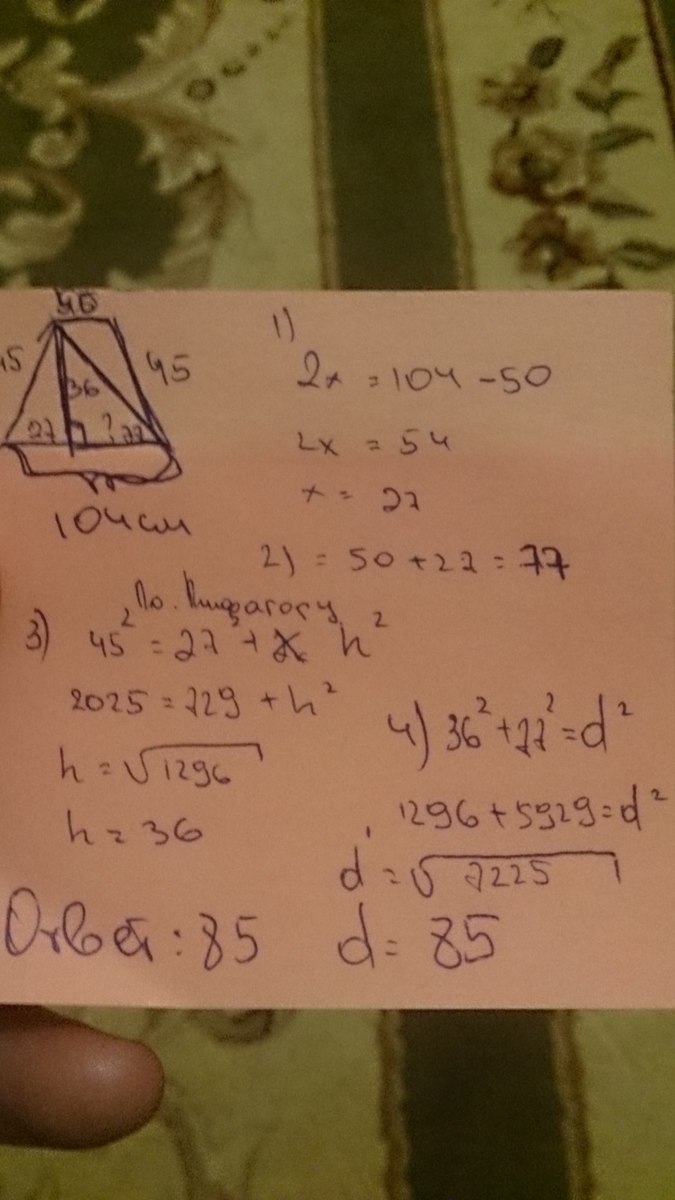 45
45
36
27
? 77
104 см
1)
2x = 104 - 50
2x = 54
x = 27
2) = 50 + 27 = 77
По. Пифагору
3) 45² = 27² + h²
2025 = 729 + h²
h = √1296
h = 36
4) 36² + 77² = d²
1296 + 5929 = d²
d = √7225
d = 85
Ответ: 85